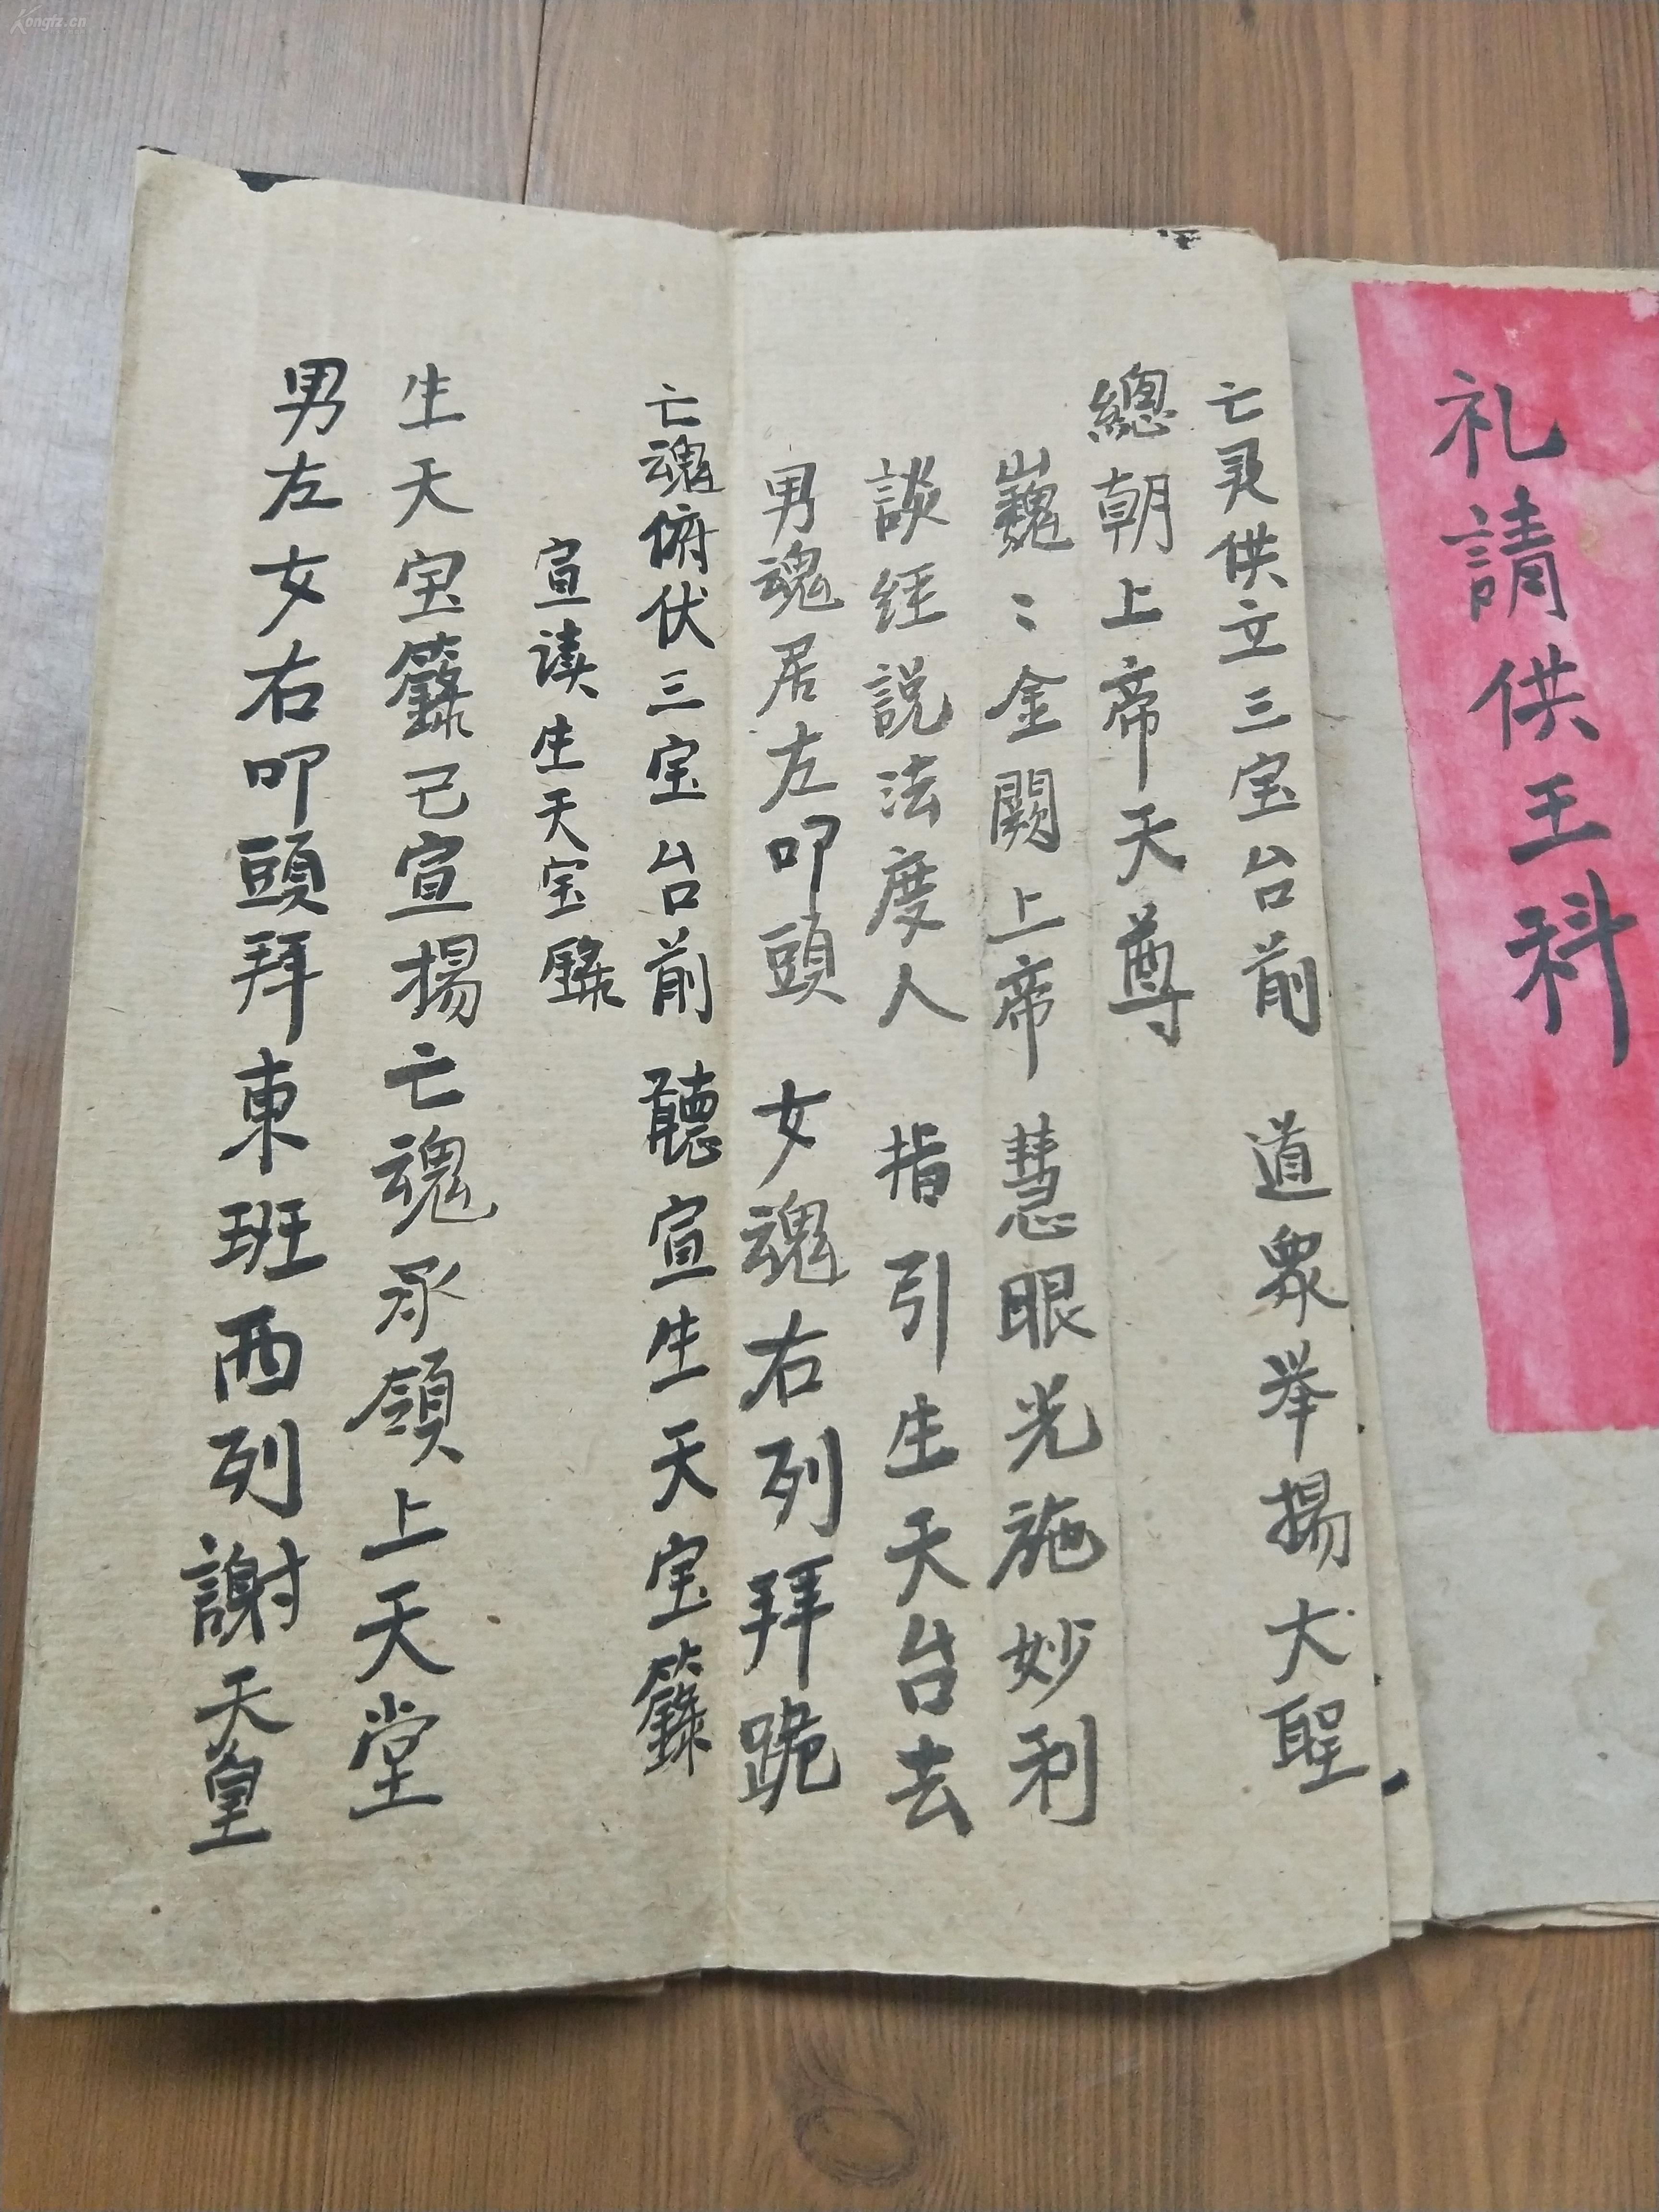 礼請供王科
亡灵供立三宝台前 道衆举揚大聖
總朝上帝天尊
巍〻金闕上帝 慧眼光施妙利
談经説法度人 指引生天台去
男魂居左叩頭 女魂右列拜跪
亡魂俯伏三宝台前 聽宣生天宝籙
宣读生天宝籙
生天宝籙已宣揚亡魂承領上天堂
男左女右叩頭拜東班西列謝天皇
Kongfz.cn